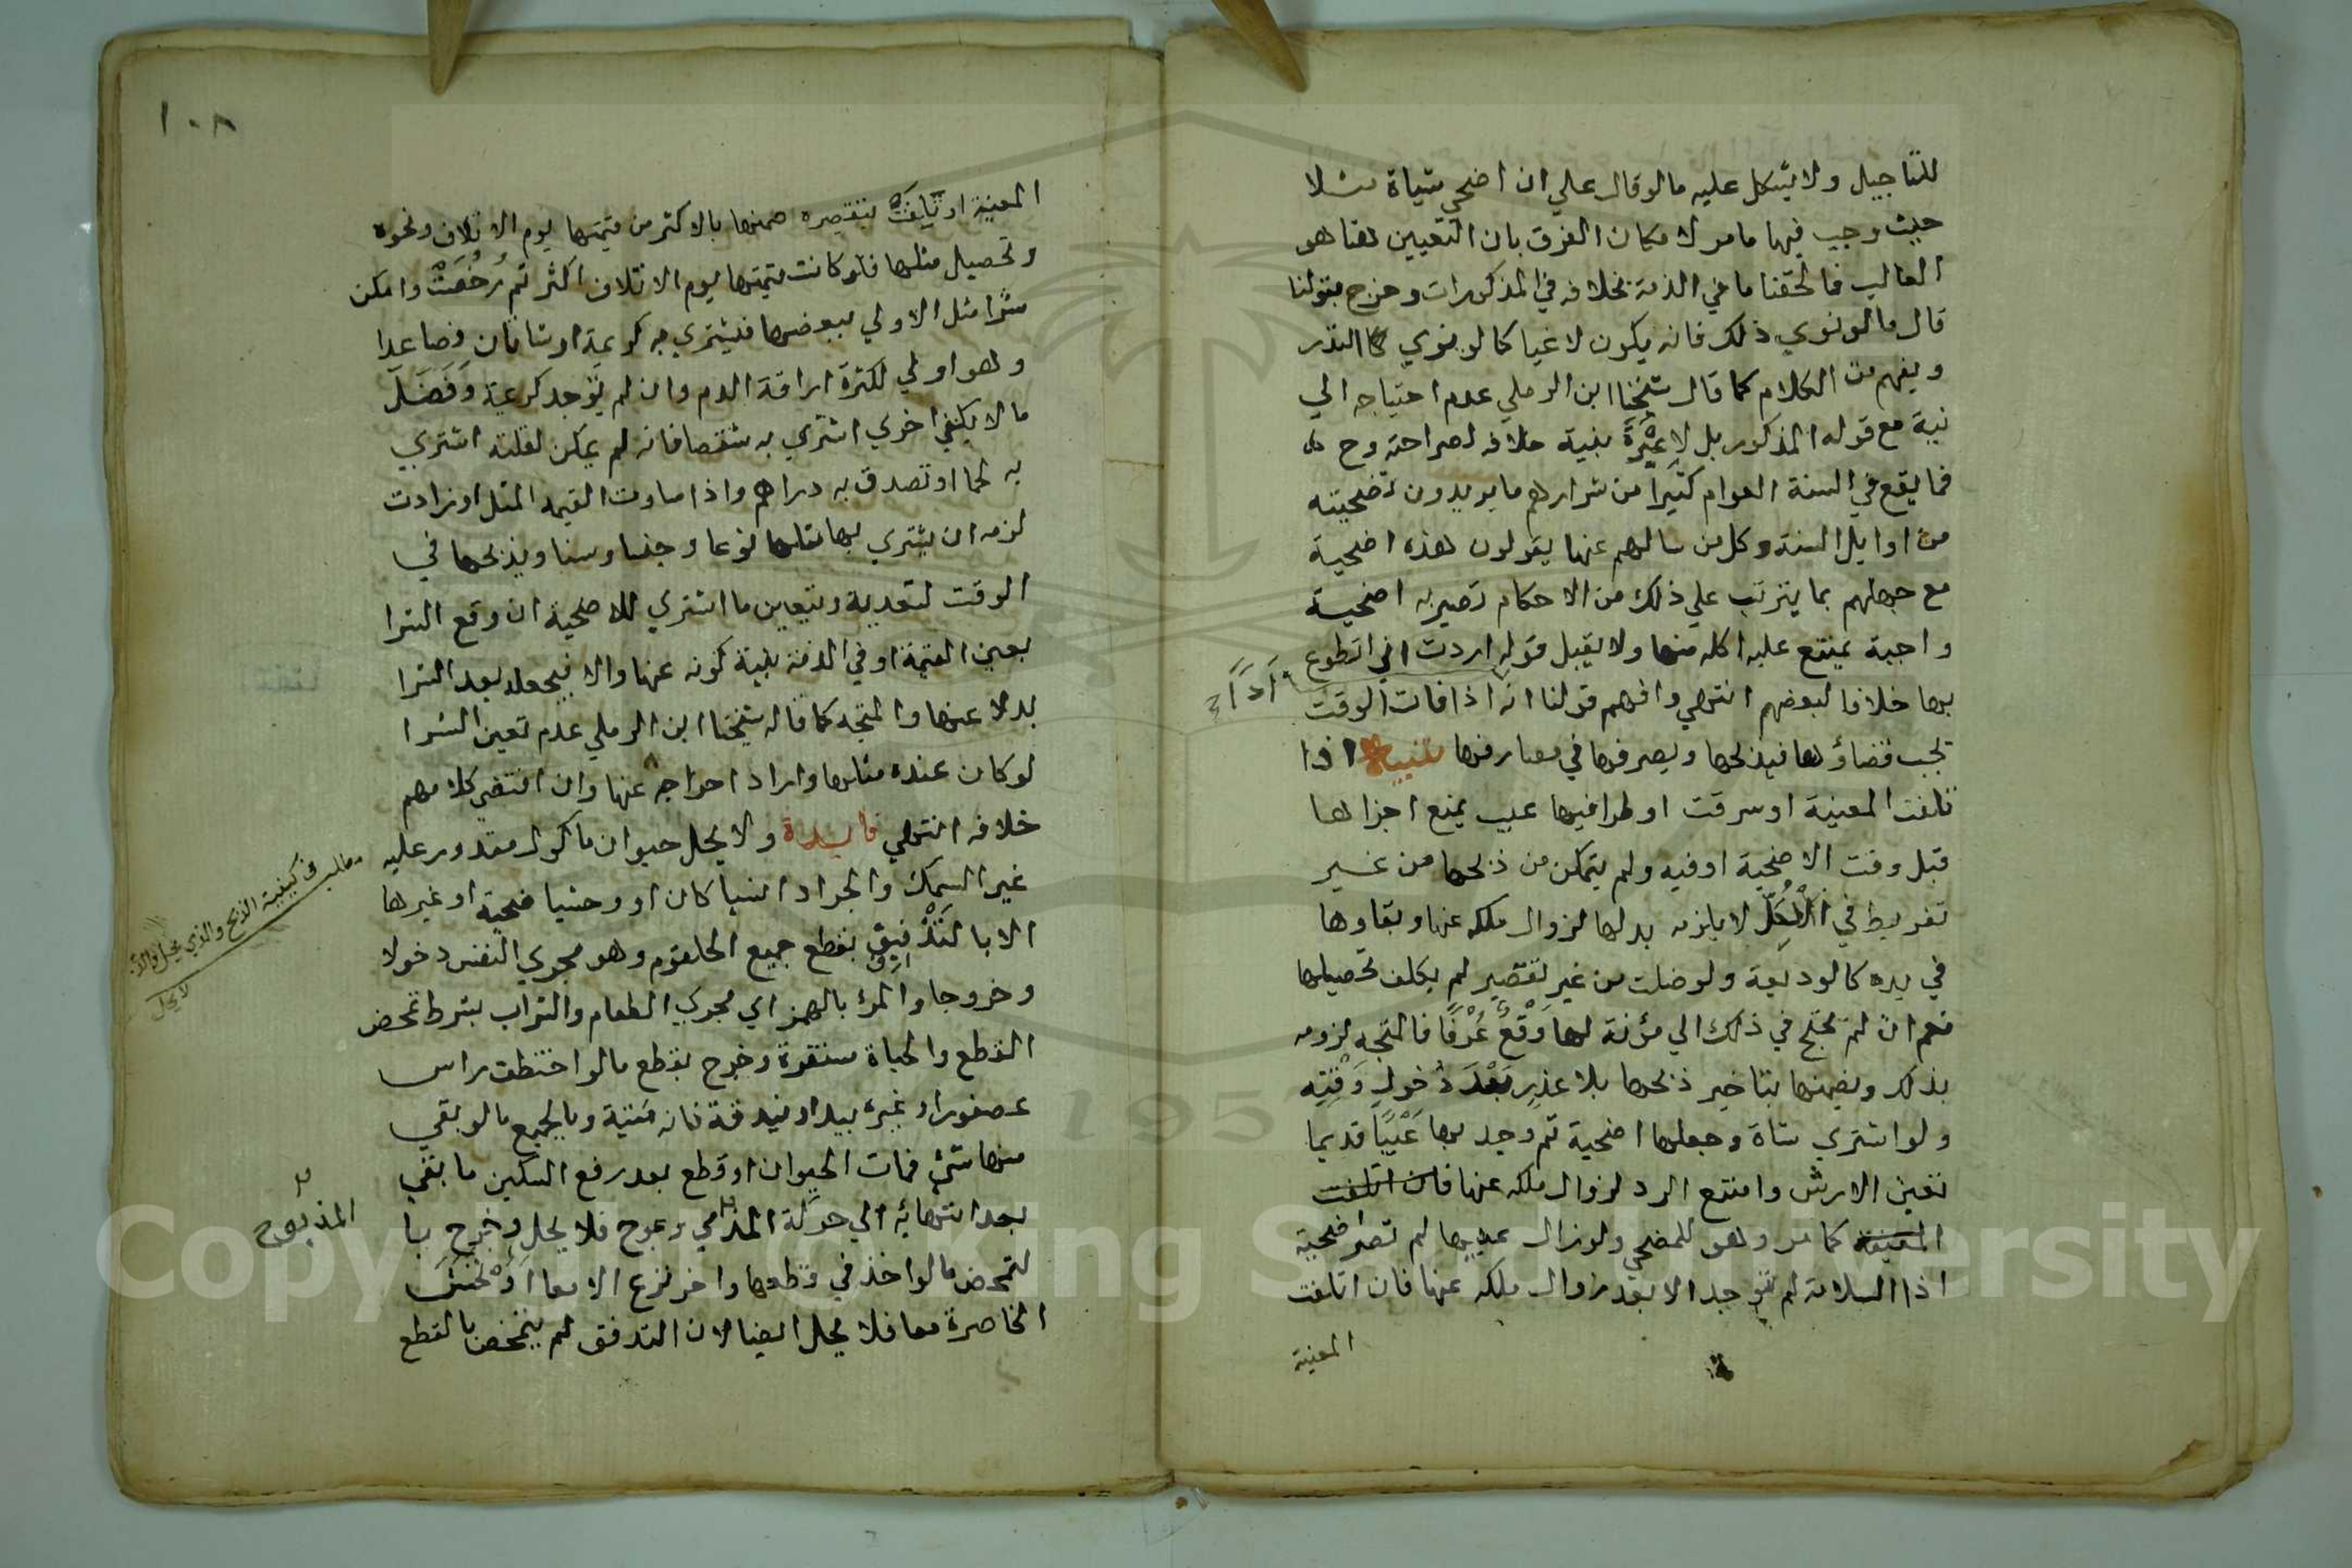 للتاجيل ولا يشكل عليه ما لو قال علي ان اضحي بشياة مثلا
حيث وجب فيها ما مر لامكان الفرق بان التعيين هنا هو
الغالب فالحقنا ما في الذمة بخلافه في المذكورات وخرج بقولنا
قال ما لو نوي ذلك فانه يكون لاغيا كما لو نوي النذر
ويفهم من الكلام كما قال شيخنا ابن الرملي عدم احتياجه الي
نية مع قوله المذكور بل لا عِبْرَةَ بنية خلافه لصراحته وح
فما يقع في السنة العوام كثيرا من شرارهم ما يريدون تضحيته
من اوايل السنة وكل من سالهم عنها يقولون هذه اضحية
مع جهلهم بما يترتب علي ذلك من الاحكام تصير به اضحية
واجبة يمتنع عليه اكله منها ولا يقبل قوله اردت اني اتطوع
بها خلافا لبعضهم انتهي وافهم قولنا انه اذا فات الوقت
يجب قضاؤها فيذبحها ويصرفها في مصارفها تنبيه اذا
تلفت المعينة او سرقت او طرا فيها عيب يمنع اجزاها
قبل وقت الاضحية او فيه ولم يتمكن من ذبحها من غير
تفريط في الكُلّ لا يلزمه بدلها لزوال ملكه عنها وبقاوها
في يده كالوديعة ولو ضلت من غير تقصير لم يكلف تحصيلها
نعم ان لم يحتج في ذلك الي مؤنة لها وَقْعٌ عُرْفًا فالمتجه لزومه
بذلك ويضمنها بتاخير ذبحها بلا عذر بَعْدَ دُخولِ وَقْتِه
ولو اشتري شاة وجعلها اضحية ثم وجد بها عَيْبًا قديما
تعين الارش وامتنع الرد لزوال ملكه عنها فان اتلفت
المعينة كما مر وهو للمضحي ولو زال عيبها لم تصر اضحية
اذا السلامة لم توجد الا بعد زوال ملكه عنها فان اتلفت
المعينة
١٠٨
المعينة او تَلِفَتْ بتقصيره ضمنها بالاكثر من قيمتها يوم الاتلاف ونحوه
وتحصيل مثلها فلو كانت قيمتها يوم الاتلاف اكثر ثم رَخُصَتْ وامكن
شرا مثل الاولي ببعضها فيشتري به كريمة او شاتان فصاعدا
وهو اولي لكثرة اراقة الدم وان لم توجد كريمة وَفَضَلَ
ما لا يكفي اخري اشتري به شقصا فانه لم يمكن لقلته اشتري
به لحما او تصدق به دراهم واذا ساوت القيمه المثل او زادت
لزمه ان يشتري بها مثلها نوعا وجنسا وسنا ويذبحها في
الوقت لتعديه ويتعين ما اشتري للاضحية ان وقع الشرا
بعين القيمة او في الذمة بنية كونه عنها والا فيجعله بعد الشرا
بدلا عنها والمتجه كما قاله شيخنا ابن الرملي عدم تعين الشرا
لو كان عنده مثلها واراد اخراجه عنها وان اقتضي كلامهم
خلافه انتهي فايدة ولا يحل حيوان ماكول مقدور عليه
غير السمك والجراد انسيا كان او وحشيا ضحية او غيرها
الا بالتَّذْفِيق بقطع جميع الحلقوم وهو مجري النفس دخولا
وخروجا والمرئ بالهمز اي مجري الطعام والشراب بشرط تمحض
القطع والحياة مستقرة وخرج بقطع ما لو اختطف راس
عصفور او غيره بيد او بندقة فانه ميتة وبالجميع ما لو بقي
منها شئ فمات الحيوان او قطع بعد رفع السكين ما بقي
بعد انتهائه الي حركة فلا يحل وخرج با
لتمحض ما لو اخذ في قطعها واخر نزع الامعا اَوْ نَخَسَ
الخاصرة معا فلا يحل ايضا لان التدفق لم يتمحض بالقطع
مطلب في كيفية الذبح والذي يحل والذي
لا يحل
المذبوح